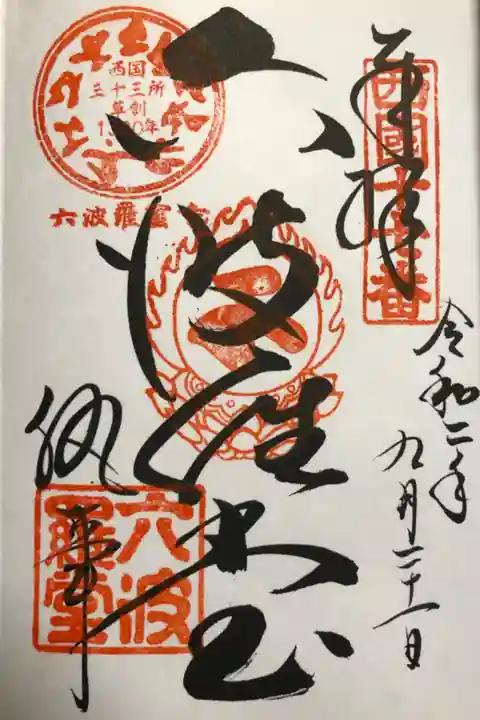 奉拝
西國十七番
令和二年
九月二十一日
六波羅堂
西国
三十三所
草創
1300年
六波羅蜜寺
六波
羅堂